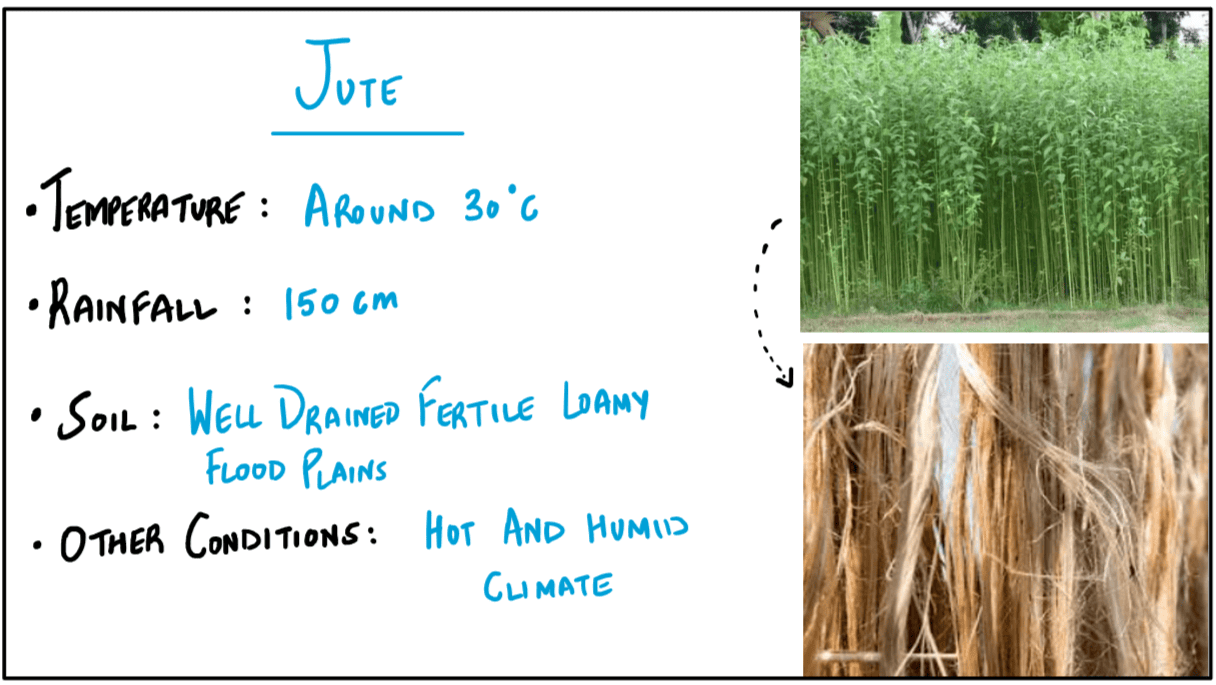 JUTE
• TEMPERATURE : AROUND 30°C
• RAINFALL : 150 cm
• SOIL : WELL DRAINED FERTILE LOAMY
FLOOD PLAINS
• OTHER CONDITIONS : HOT AND HUMID
CLIMATE